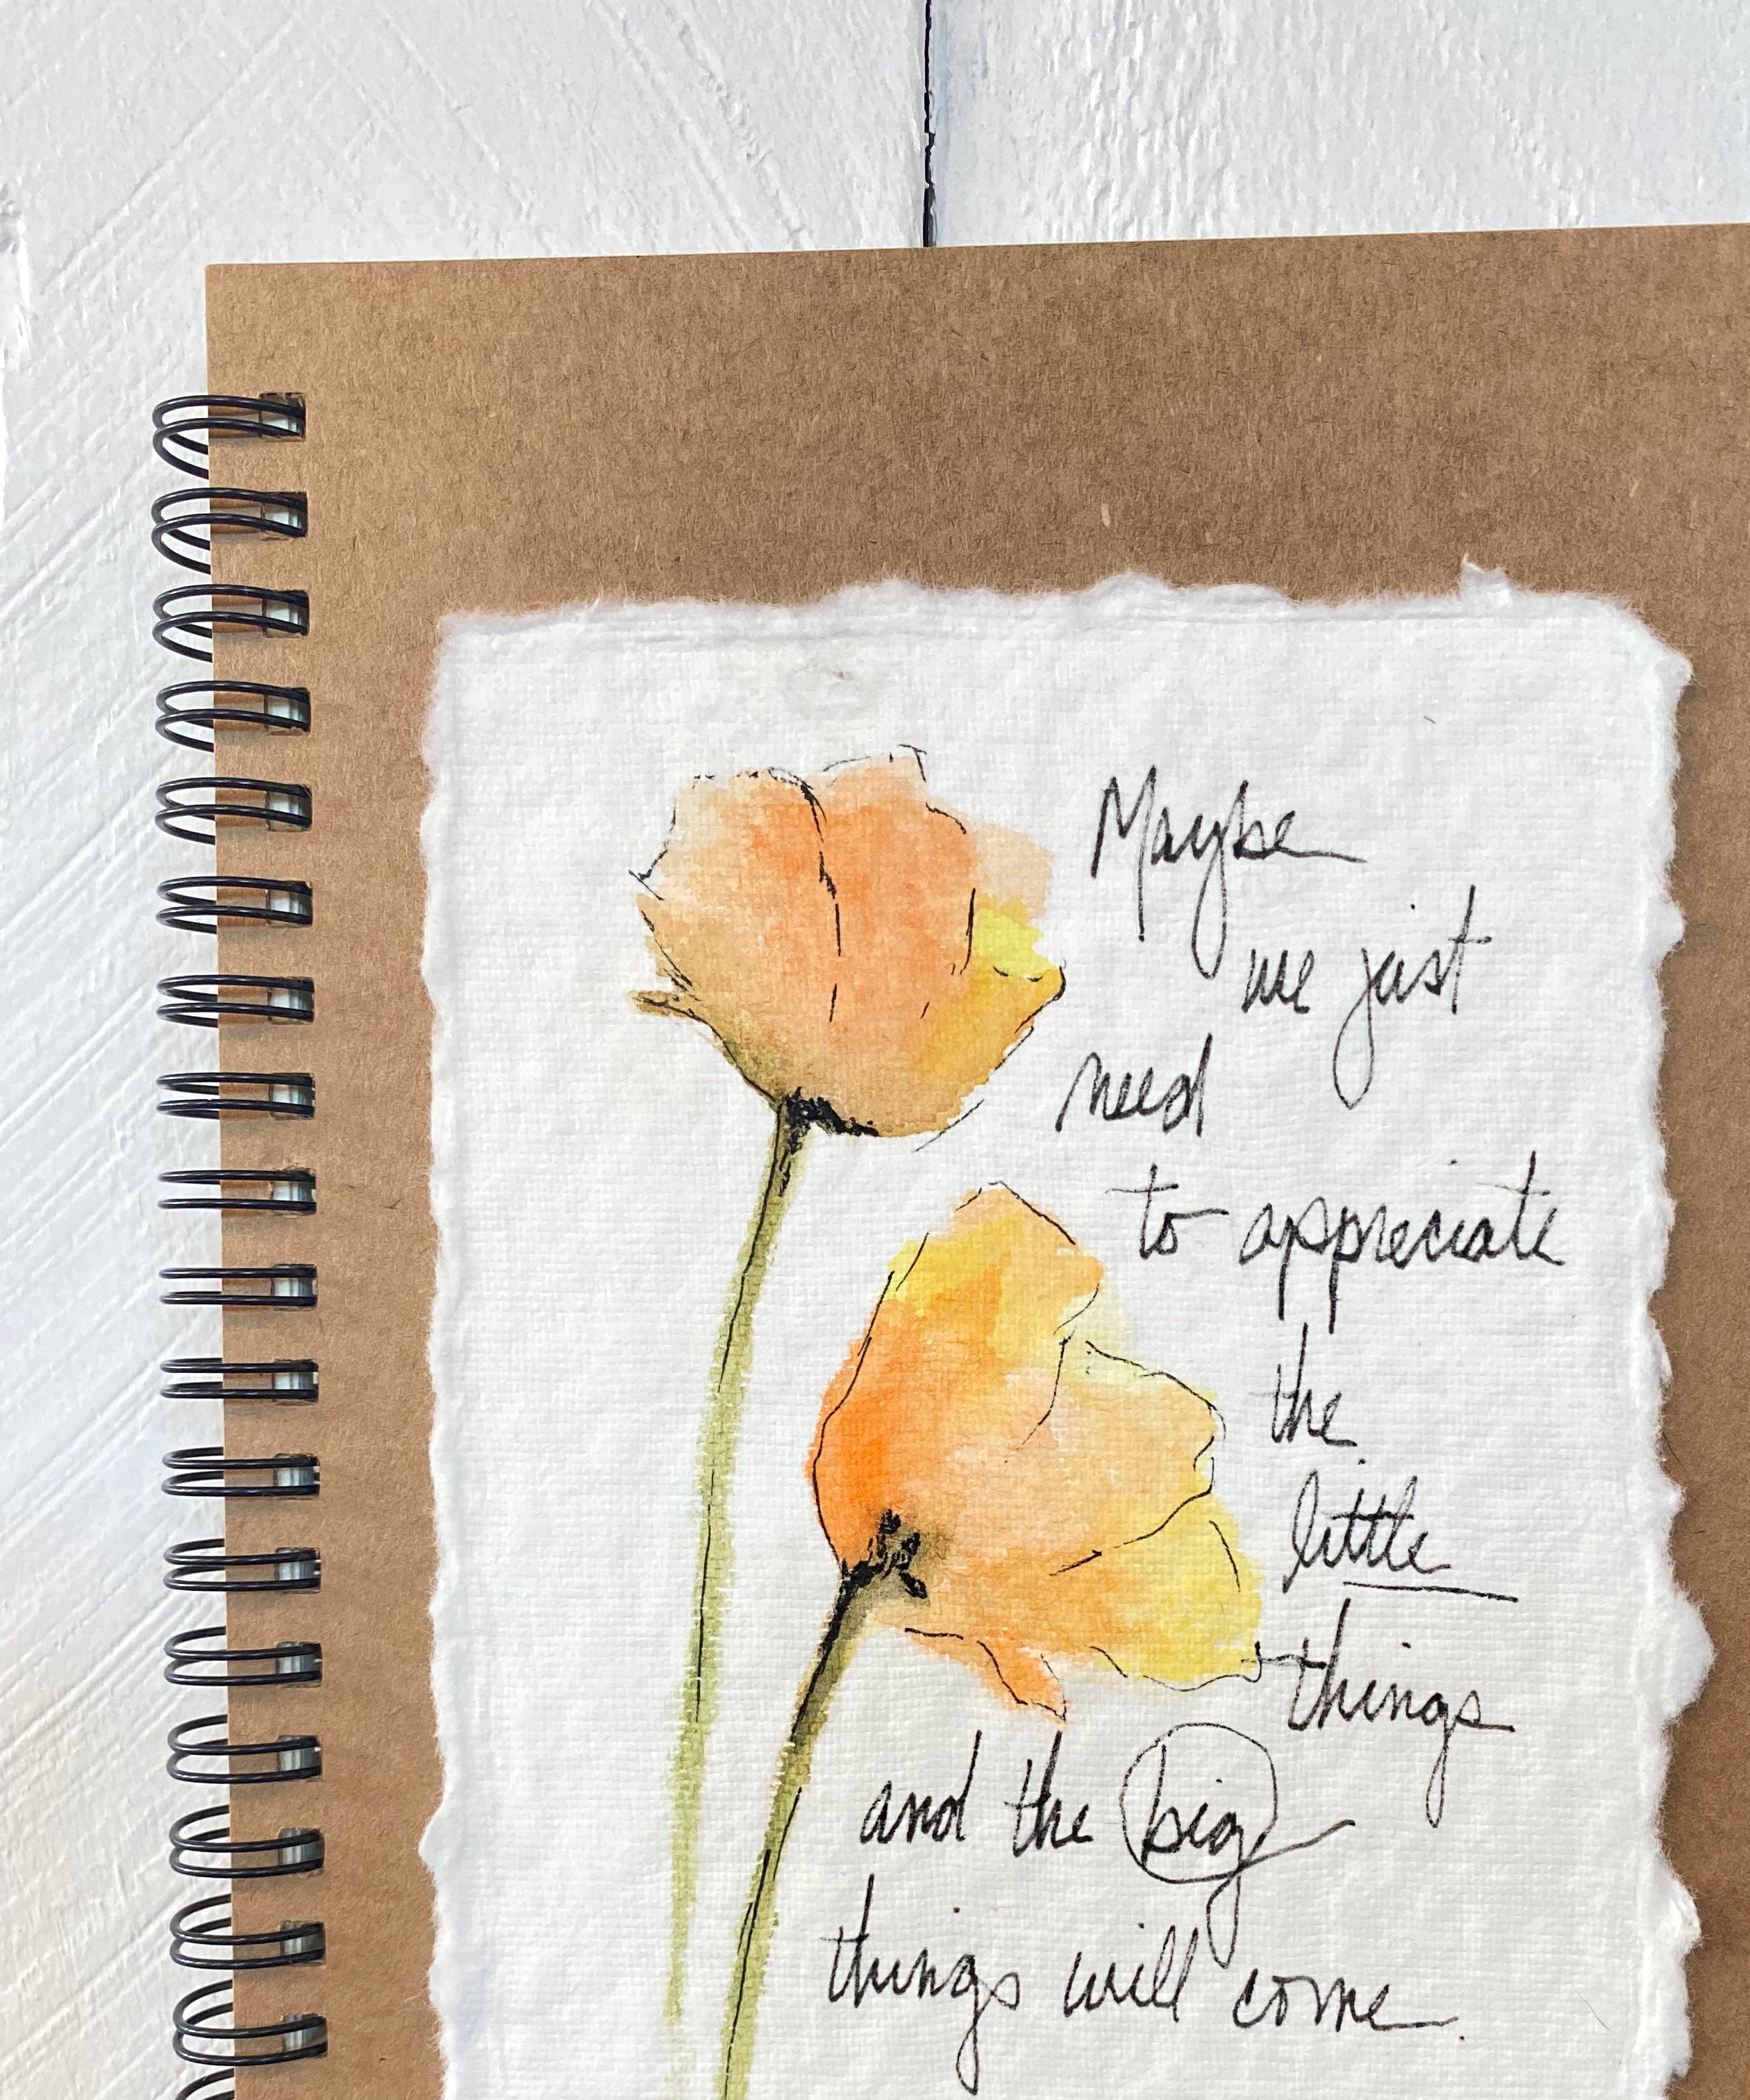 Maybe
we just
need
to appreciate
the
little
things
and the big
things will come.